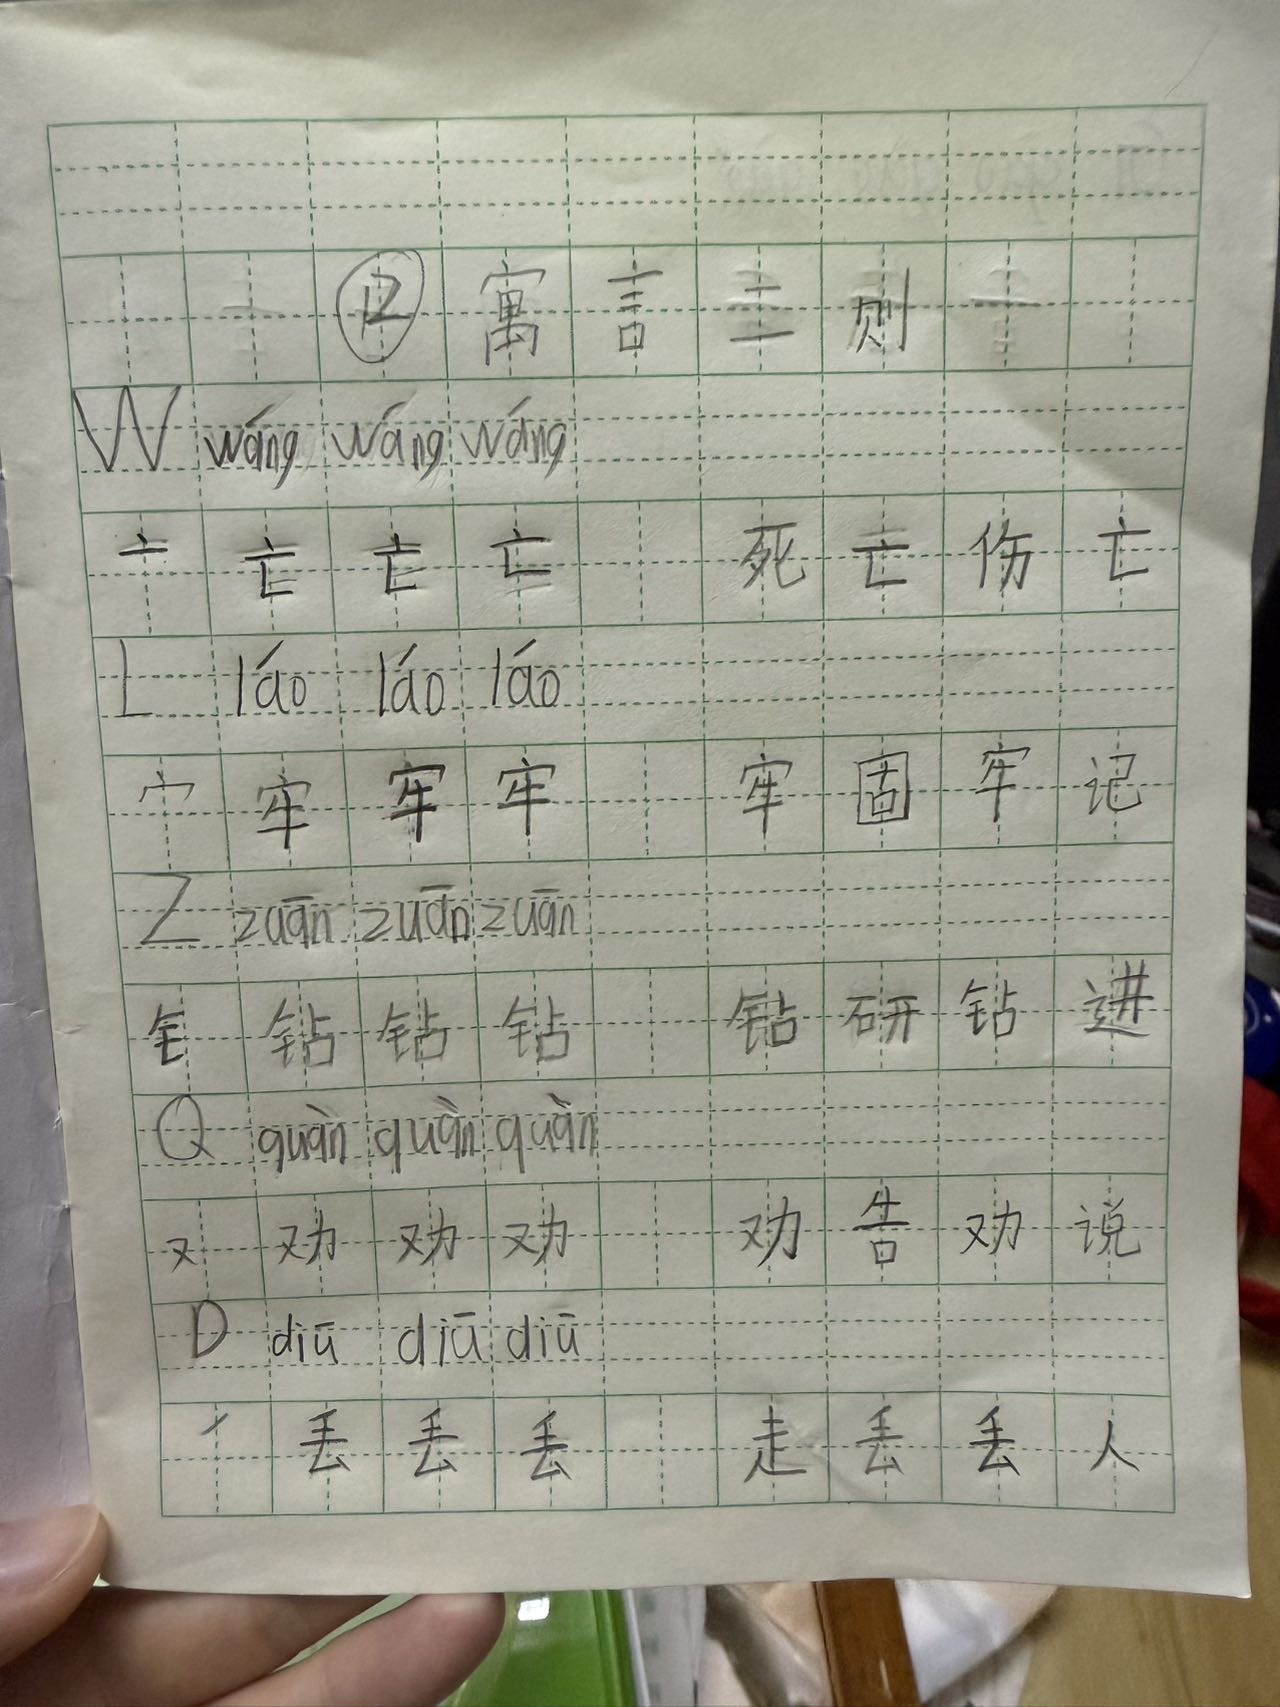 ⑫ 寓言二则
W wáng wáng wáng
亠 亡 亡 亡 死亡 伤亡
L láo láo láo
宀 牢 牢 牢 牢固 牢记
Z zuān zuān zuān
钅 钻 钻 钻 钻研 钻进
Q quàn quàn quàn
又 劝 劝 劝 劝告 劝说
D diū diū diū
丿 丢 丢 丢 走丢 丢人